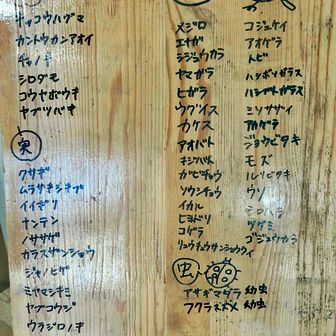 キッコウハグマ
カントウカンアオイ
チャノキ
シロダモ
コウヤボウキ
ヤブツバキ
実
クサギ
ムラサキシキブ
イイギリ
ナンテン
ノササゲ
カラスザンショウ
ジャノヒゲ
ミヤマシキミ
ヤブコウジ
ウラジロノキ
メジロ
エナガ
シジュウカラ
ヤマガラ
ヒガラ
ウグイス
カケス
アオバト
キジバト
ガビチョウ
ソウシチョウ
イカル
ヒヨドリ
コゲラ
リュウキュウサンショウクイ
コジュケイ
アオゲラ
トビ
ハシボソガラス
ハシブトガラス
ミソサザイ
アカゲラ
ジョウビタキ
モズ
ルリビタキ
ウソ
シロハラ
ツグミ
ゴジュウカラ
虫
アサギマダラ 幼虫
フクラスズメ 幼虫